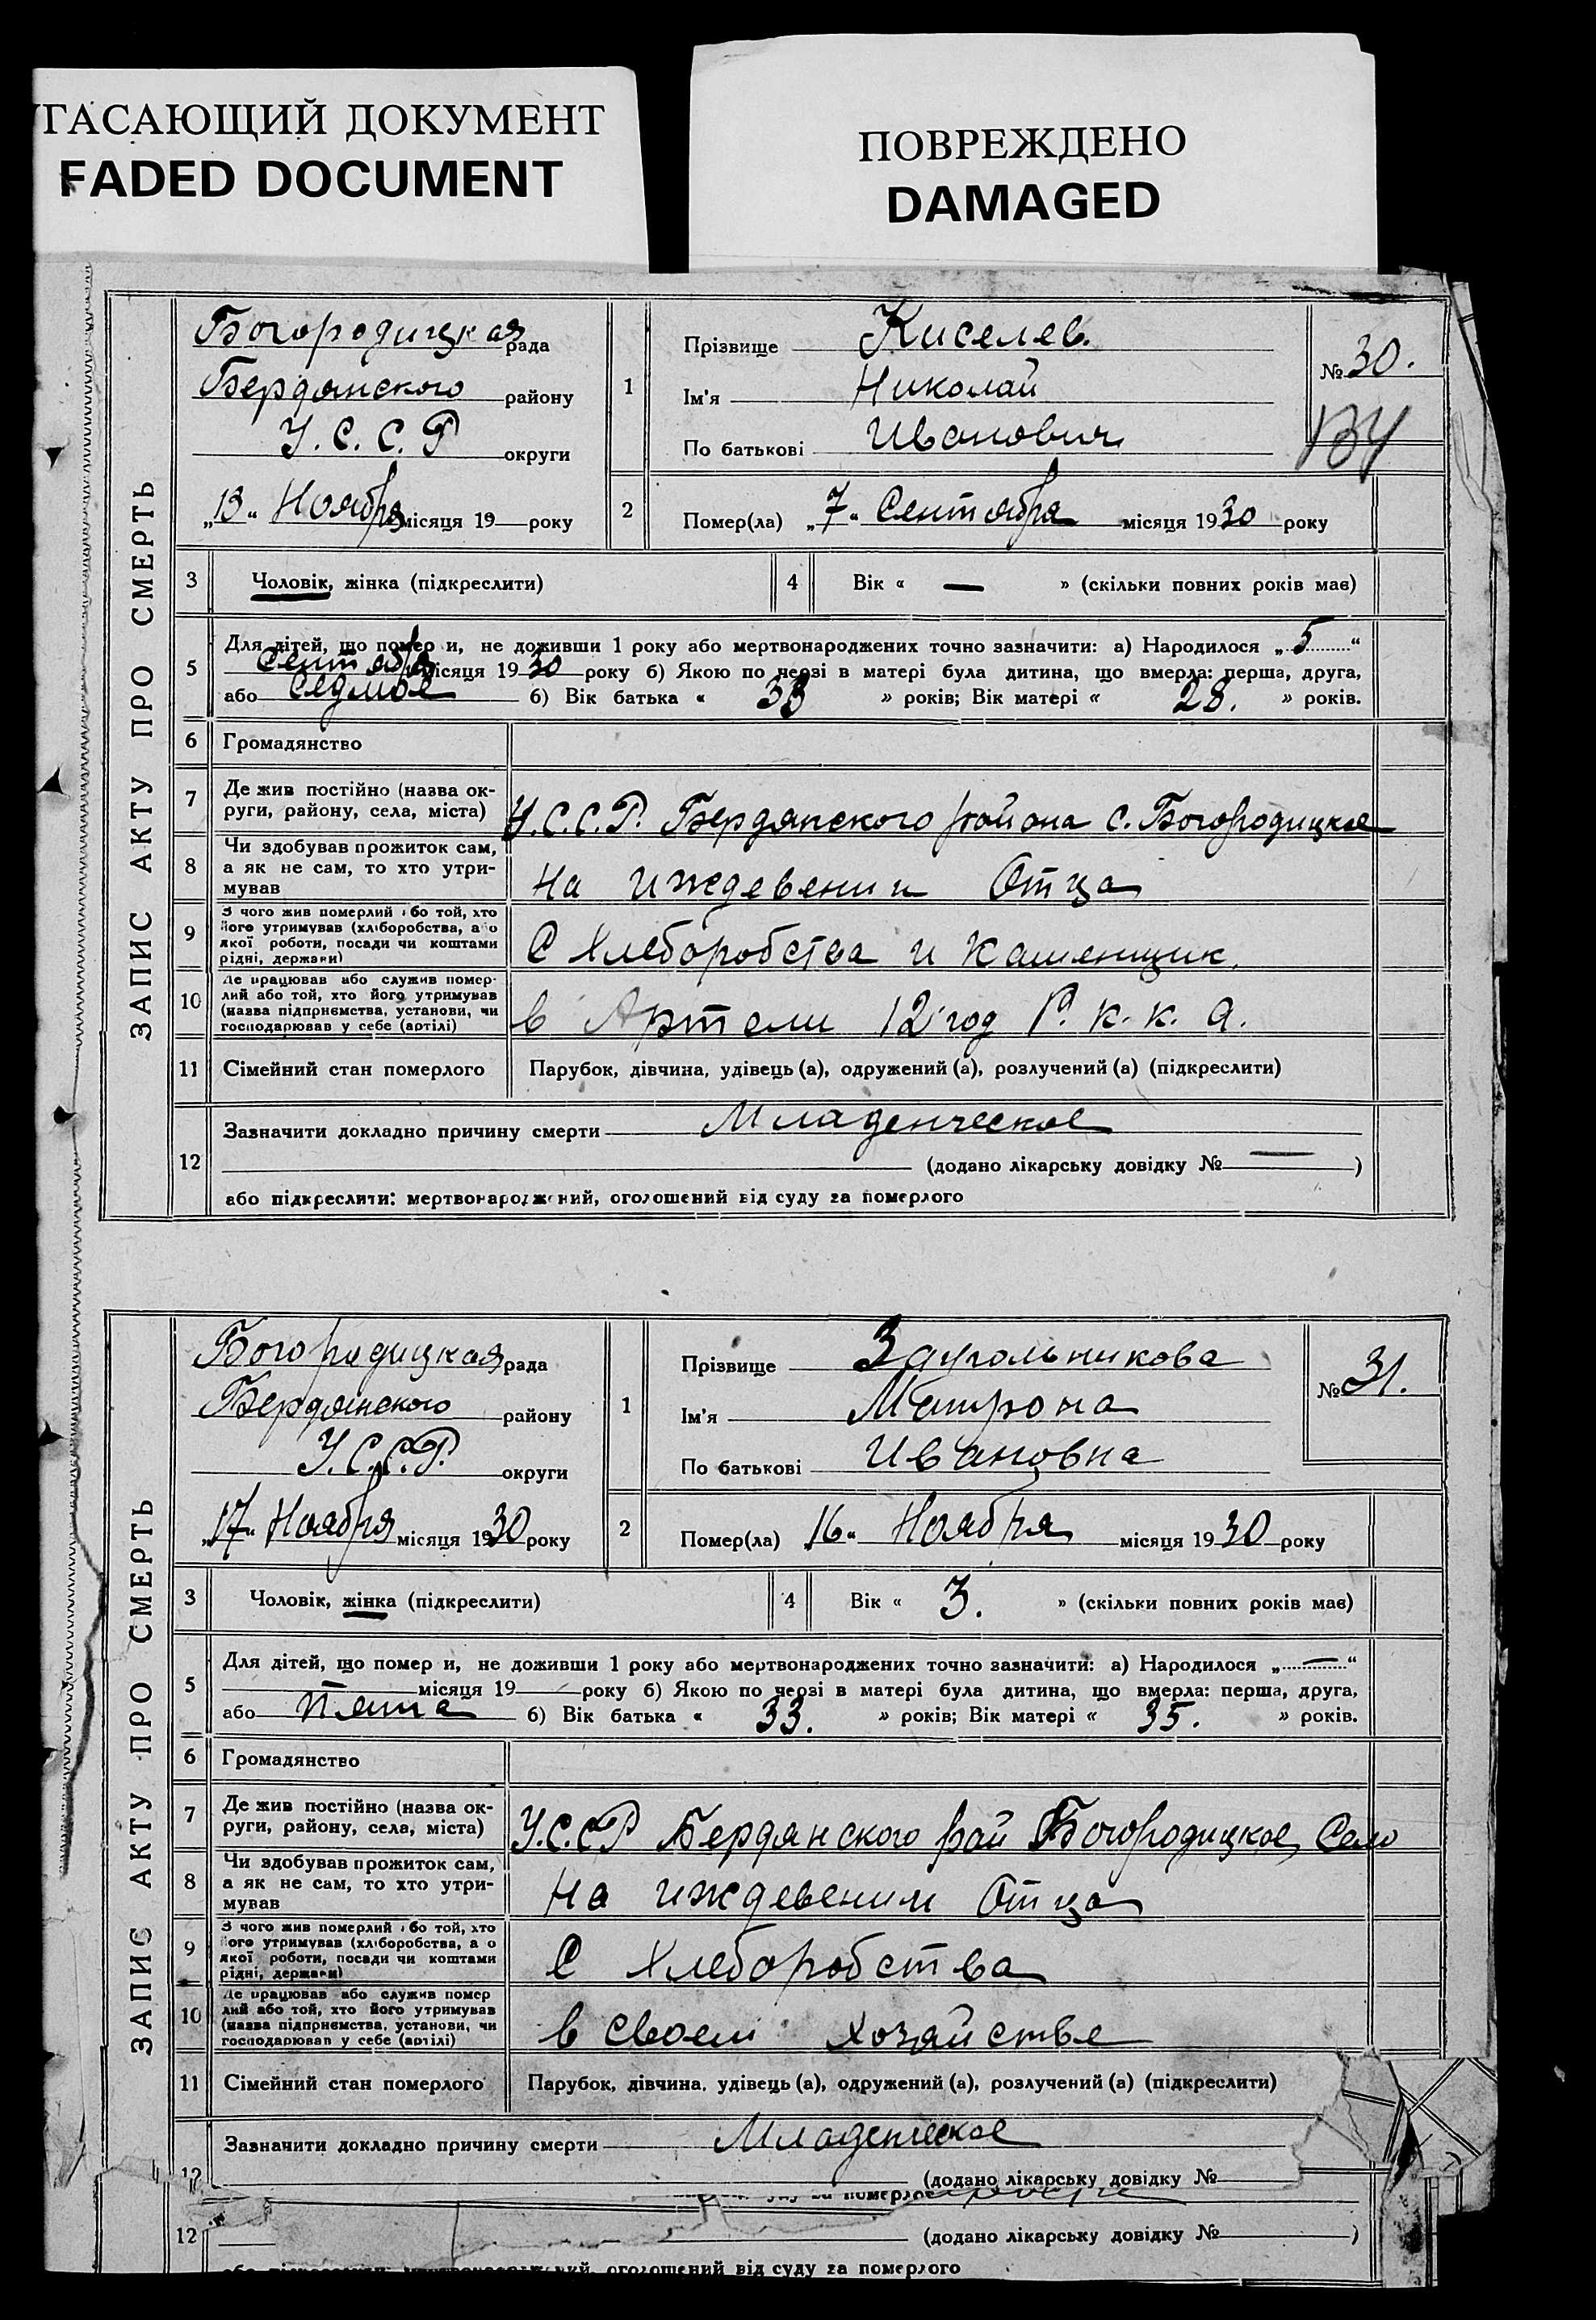 УГАСАЮЩИЙ ДОКУМЕНТ
FADED DOCUMENT
ПОВРЕЖДЕНО
DAMAGED
ЗАПИС АКТУ ПРО СМЕРТЬ
Богородицкая рада
Бердянского району
У.С.С.Р округи
„13“ Ноября місяця 19 року
1
Прізвище Киселев.
Ім'я Николай
По батькові Иванович
№ 30.
2
Помер(ла) „7“ Сентября місяця 1930 року
3 Чоловік, жінка (підкреслити)
4 Вік « — » (скільки повних років має)
5 Для дітей, що помер и, не доживши 1 року або мертвонароджених точно зазначити: а) Народилося „5“
Сентября місяця 1930 року б) Якою по черзі в матері була дитина, що вмерла: перша, друга,
або седмое б) Вік батька « 33 » років; Вік матері « 28. » років.
6 Громадянство
7 Де жив постійно (назва ок-
руги, району, села, міста)
У.С.С.Р. Бердянского района с. Богородицкое
8 Чи здобував прожиток сам,
а як не сам, то хто утри-
мував
На иждевении Отца
9 З чого жив померлий або той, хто
його утримував (хліборобства, або
якої роботи, посади чи коштами
рідні, держави)
С Хлеборобства и Каменщик.
10 Де працював або служив помер-
лий або той, хто його утримував
(назва підприємства, установи, чи
господарював у себе (артілі)
в Артели 12 год Р. К. К. А.
11 Сімейний стан померлого
Парубок, дівчина, удівець (а), одружений (а), розлучений (а) (підкреслити)
12 Зазначити докладно причину смерти Младенческое
(додано лікарську довідку № — )
або підкреслити: мертвонароджений, оголошений від суду за померлого
ЗАПИС АКТУ ПРО СМЕРТЬ
Богородицкая рада
Бердянского району
У.С.С.Р. округи
„17“ Ноября місяця 1930 року
1
Прізвище Заугольникова
Ім'я Матрона
По батькові Ивановна
№ 31.
2
Помер(ла) „16“ Ноября місяця 1930 року
3 Чоловік, жінка (підкреслити)
4 Вік « 3. » (скільки повних років має)
5 Для дітей, що помер и, не доживши 1 року або мертвонароджених точно зазначити: а) Народилося „—“
місяця 19 року б) Якою по черзі в матері була дитина, що вмерла: перша, друга,
або пята б) Вік батька « 33. » років; Вік матері « 35. » років.
6 Громадянство
7 Де жив постійно (назва ок-
руги, району, села, міста)
У.С.С.Р Бердянского рай Богородицкое Село
8 Чи здобував прожиток сам,
а як не сам, то хто утри-
мував
На иждевении Отца
9 З чого жив померлий або той, хто
його утримував (хліборобства, або
якої роботи, посади чи коштами
рідні, держави)
С Хлеборобства
10 Де працював або служив помер
лий або той, хто його утримував
(назва підприємства, установи, чи
господарював у себе (артілі)
в своем хозяйстве
11 Сімейний стан померлого
Парубок, дівчина, удівець (а), одружений (а), розлучений (а) (підкреслити)
Зазначити докладно причину смерти Младенческое
12
(додано лікарську довідку №
суду за померлого
12 (додано лікарську довідку № )
оголошений від суду за померлого